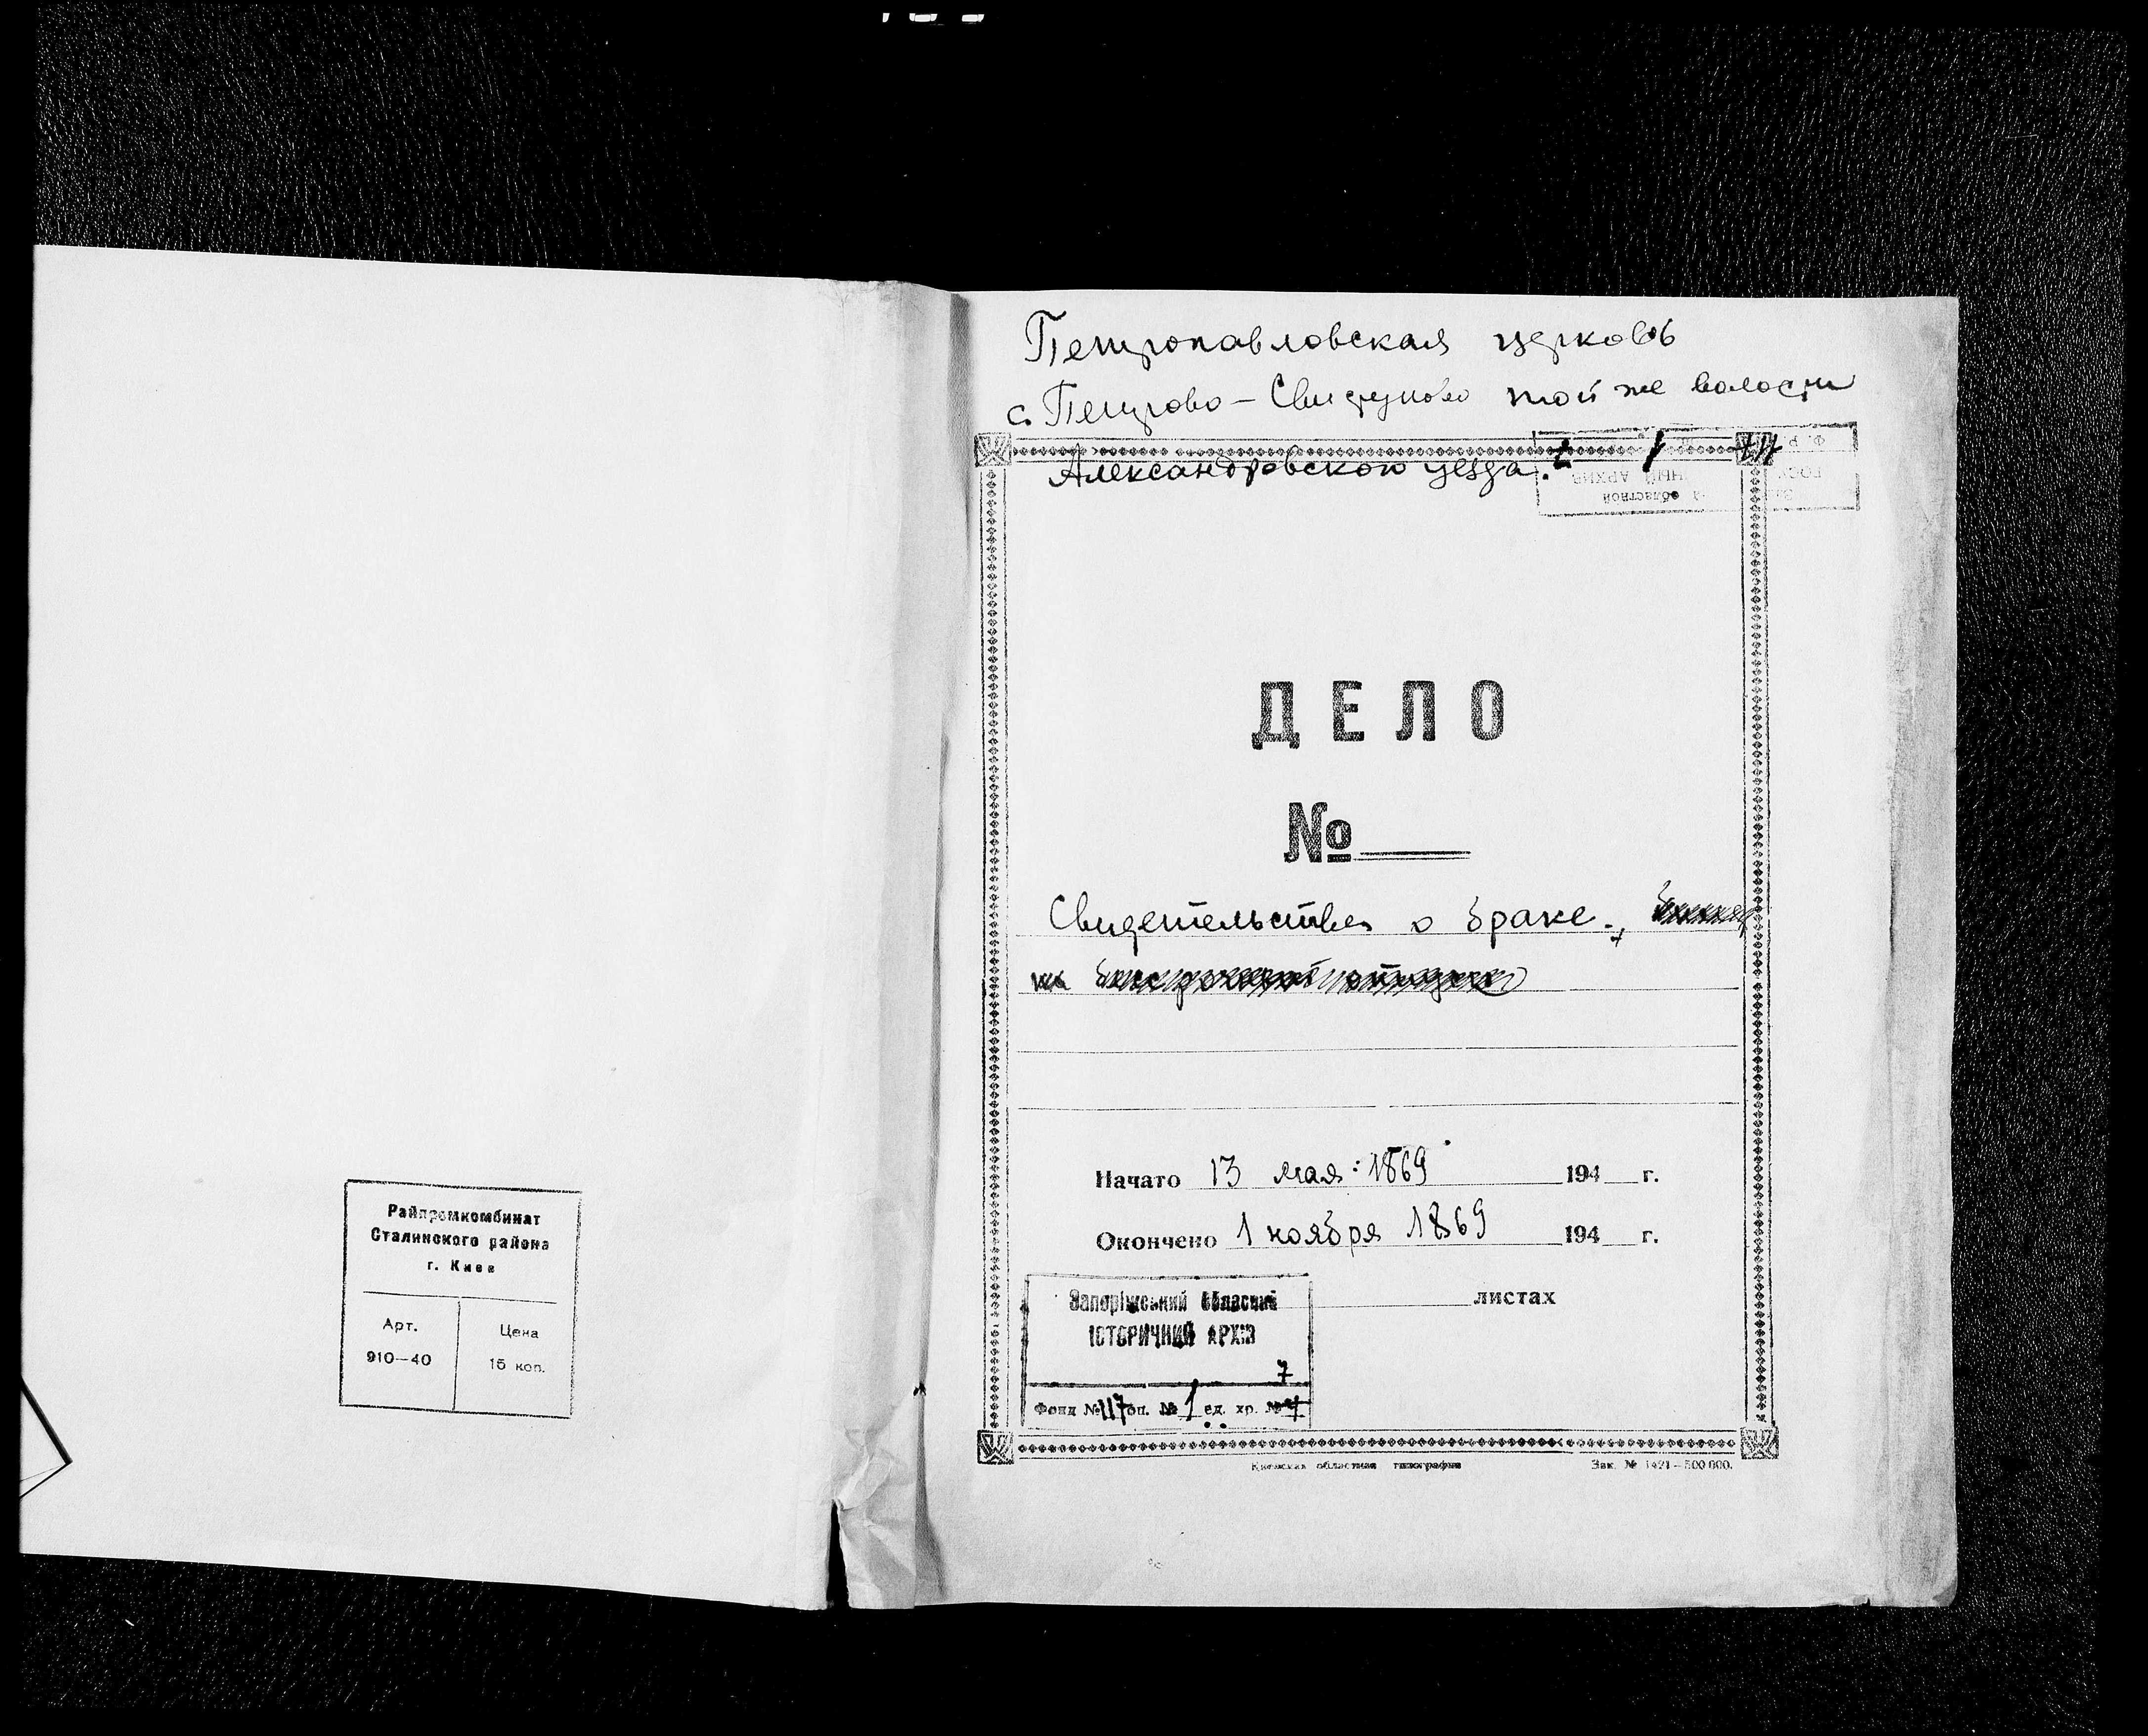 Райпромкомбинат
Сталинского района
г. Киев
Арт.
Цена
910—40
15 коп.
Петропавловская церковь
с. Петрово-Свистуново той же волости
Александровского уезда.
117
ДЕЛО
№
Свидетельства о браке.,
Начато 13 мая 1869 194 г.
Окончено 1 ноября 1869 194 г.
листах
Запоріжський Обласний
ІСТОРИЧНИЙ АРХІВ
7
Фонд № 117 оп. № 1 ед. хр. №
Киевская областная типография
Зак. № 1421—500 000.